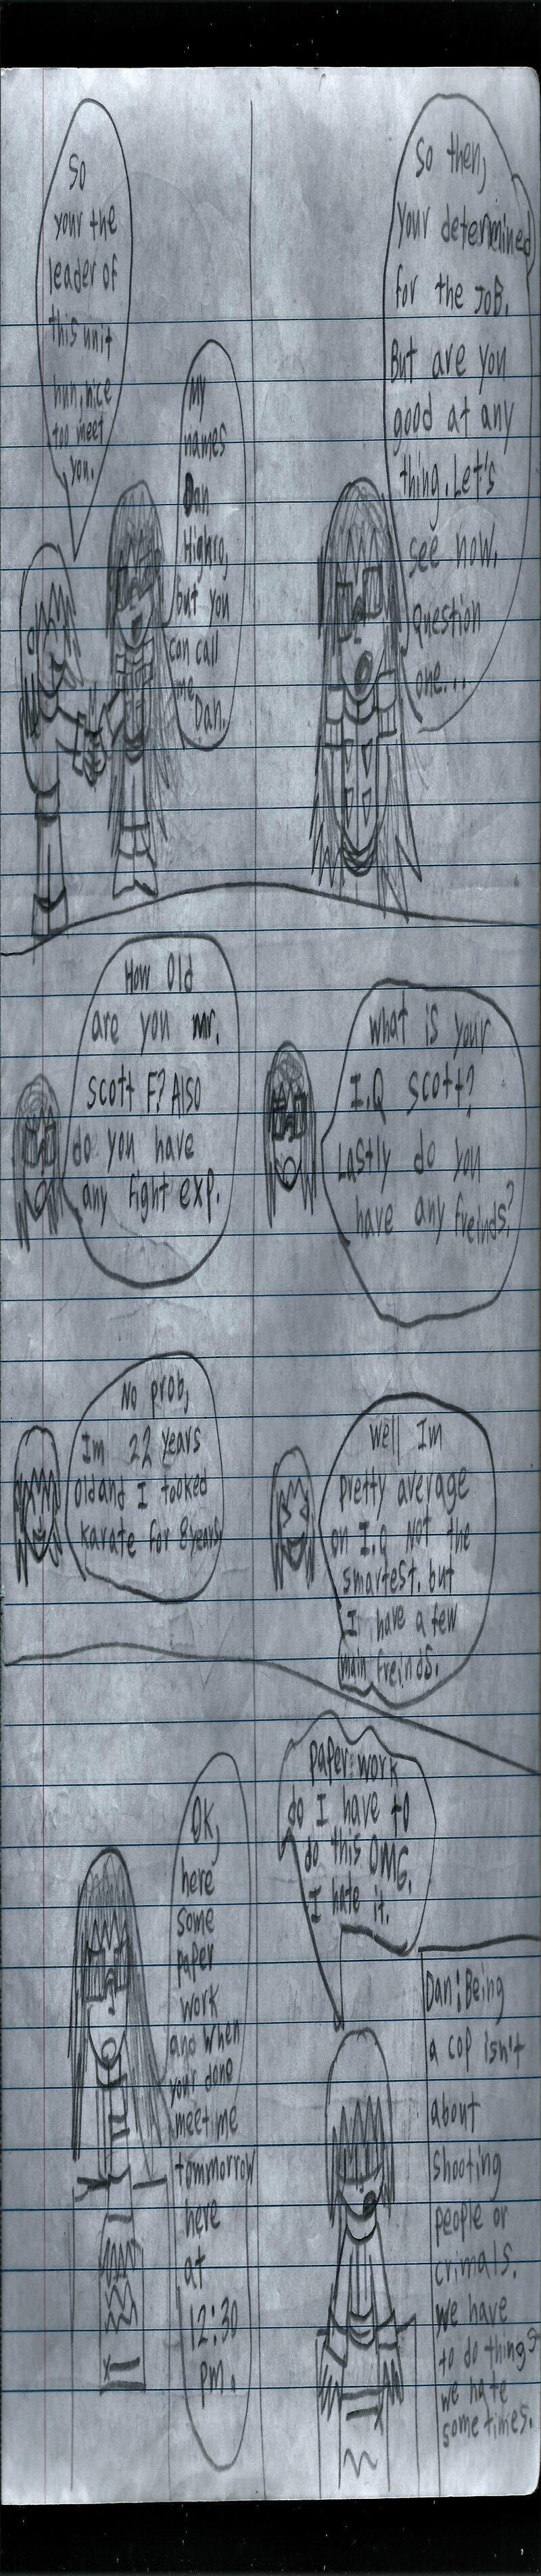 So
your the
leader of
this unit
huh, nice
too meet
you.
My
names
Dan
Highro,
but you
can call
me
Dan.
So then,
your determined
for the JOB.
But are you
good at any
thing. Let's
see now.
Question
one...
How Old
are you mr.
Scott F? Also
do you have
any fight exp.
What is your
I.Q Scott?
Lastly do you
have any freinds?
No prob,
Im 22 years
old and I tooked
karate for 8 years
Well Im
pretty average
on I.Q NOT the
smartest. but
I have a few
main freinds.
OK,
here
some
paper
work
and when
your done
meet me
tommorrow
here
at
12:30
pm.
paper work
do I have to
do this OMG.
I hate it.
Dan: Being
a cop isn't
about
shooting
people or
crimals.
we have
to do things
we hate
some times.